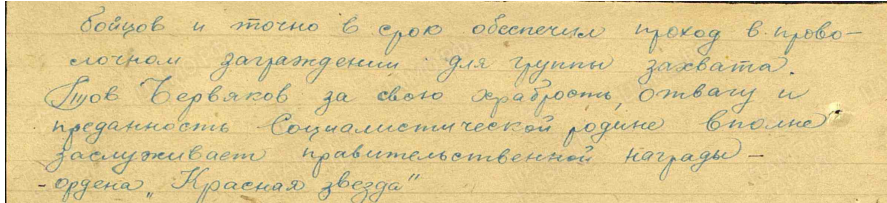 бойцов и точно в срок обеспечил проход в прово-
лочном заграждении для группы захвата.
Тов Червяков за свою храбрость, отвагу и
преданность Социалистической родине вполне
заслуживает правительственной награды -
- ордена „Красная звезда"